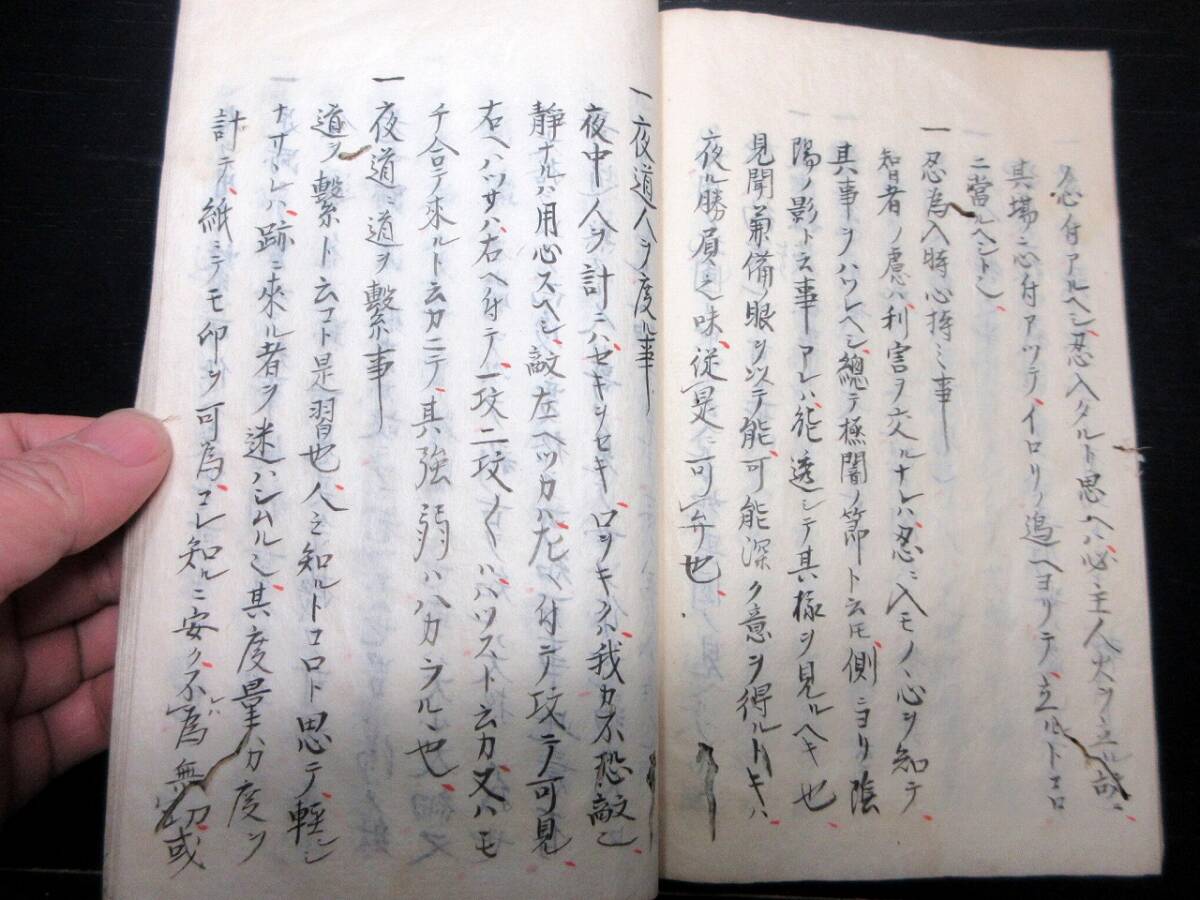 心付アルヘシ忍入タルト思ヘハ必主人火ヲ立ル故ニ
其場ニ心付アツテイロリノ邊ヘヨリテ立ルトコロ
ニ當ルヘシト
一忍為入時心持之事
智者ノ慮ハ利害ヲ交ルナレハ忍ニ入モノヽ心ヲ知テ
其事ヲハツレヘシ總テ極闇ノ節ト云トモ側ニヨリ陰
陽ノ影ト云事アレハ能透シテ其様ヲ見ルヘキ也
見聞兼備ノ眼ヲ以テ能可能深ク意ヲ得ルトキハ
夜ル勝負之味従是可弁也
一夜道人ヲ度ル事
夜中人ヲ計ニハセキヲセキ ロヲキクハ我カ不恐敵也
静ナルハ用心スヘシ敵左ヘツカハ左ヘ付テ可見
右ヘハツサハ右ヘ付テ一攻二攻〱ハハツスト云カ又ハモ
チ合テ来ルト云カニテ其強弱ハハカラルヽ也
一夜道ニ道ヲ繋事
道ヲ繋ト云コト是習也人之知ルトコロト思テ輕シ
ナサレハ跡ニ來ル者ヲ迷ハシムル也其度量ハカ度ヲ
計テ紙ニテモ印ヲ可為コレ知ルニ安ク不為ハ無切或